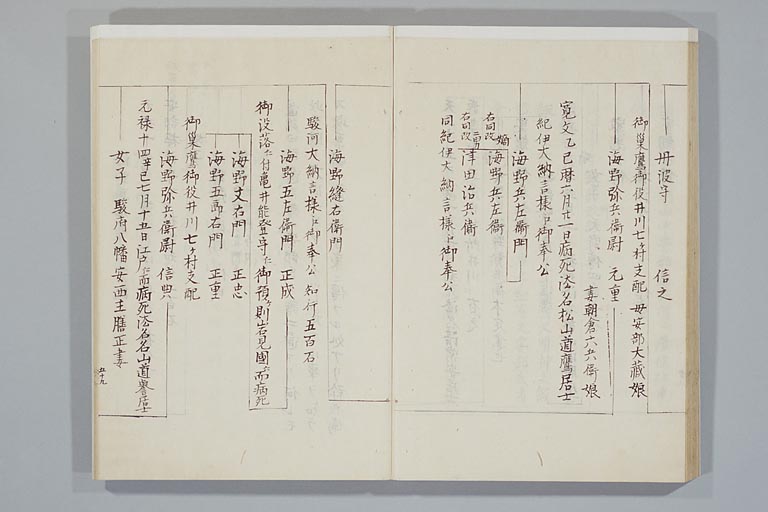 丹波守　信之
御巣鷹御役井川七ヶ村支配 母安部大蔵娘
海野弥兵衛尉　元重
妻朝倉六兵衛娘
寛文乙巳暦六月廿一日病死法名松山道鷹居士
紀伊大納言様ニ御奉公
海野兵左衛門
嫡
右同改
海野兵左衛
二男
右同改
津田治兵衛
同紀伊大納言様ニ御奉公
海野縫右衛門
駿河大納言様ニ御奉公 知行五百石
海野五左衛門　正成
御没落ニ付亀井能登守ニ御預ヶ則岩見國ニ而病死
海野文右門　正忠
海野五郎右門　正重
御巣鷹御役井川七ヶ村支配
海野弥兵衛尉　信典
元禄十四辛巳七月十五日江戸ニ而病死法名名山道誉居士
女子　駿府八幡安西主膳正妻
五十九